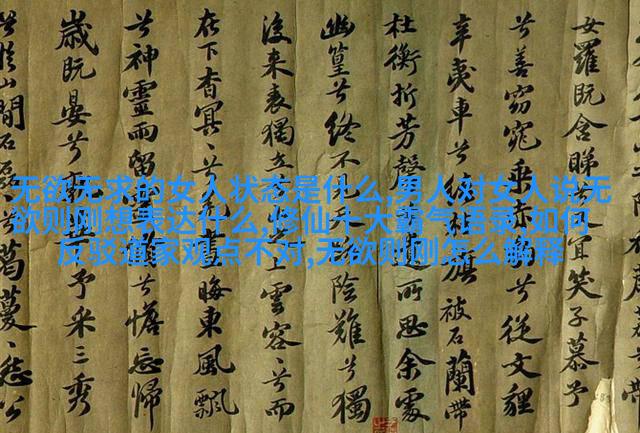 无欲无求的女人状态是什么,男人对女人说无
欲则刚想表达什么,修仙十大霸气语录,如何
反驳道家观点不对,无欲则刚怎么解释
女羅既含睇宜笑子慕予
兮善窈窕乘赤兮從文貍
辛夷車兮旗被石蘭帶
杜衡折芳馨所思余處
幽篁兮終不難兮獨
後來表獨立雲容容兮而
在下杳冥冥兮晦東風飄
兮神靈雨留兮憺忘歸
歲既晏兮予采三秀
兮於山間石磊葛蔓蔓怨公